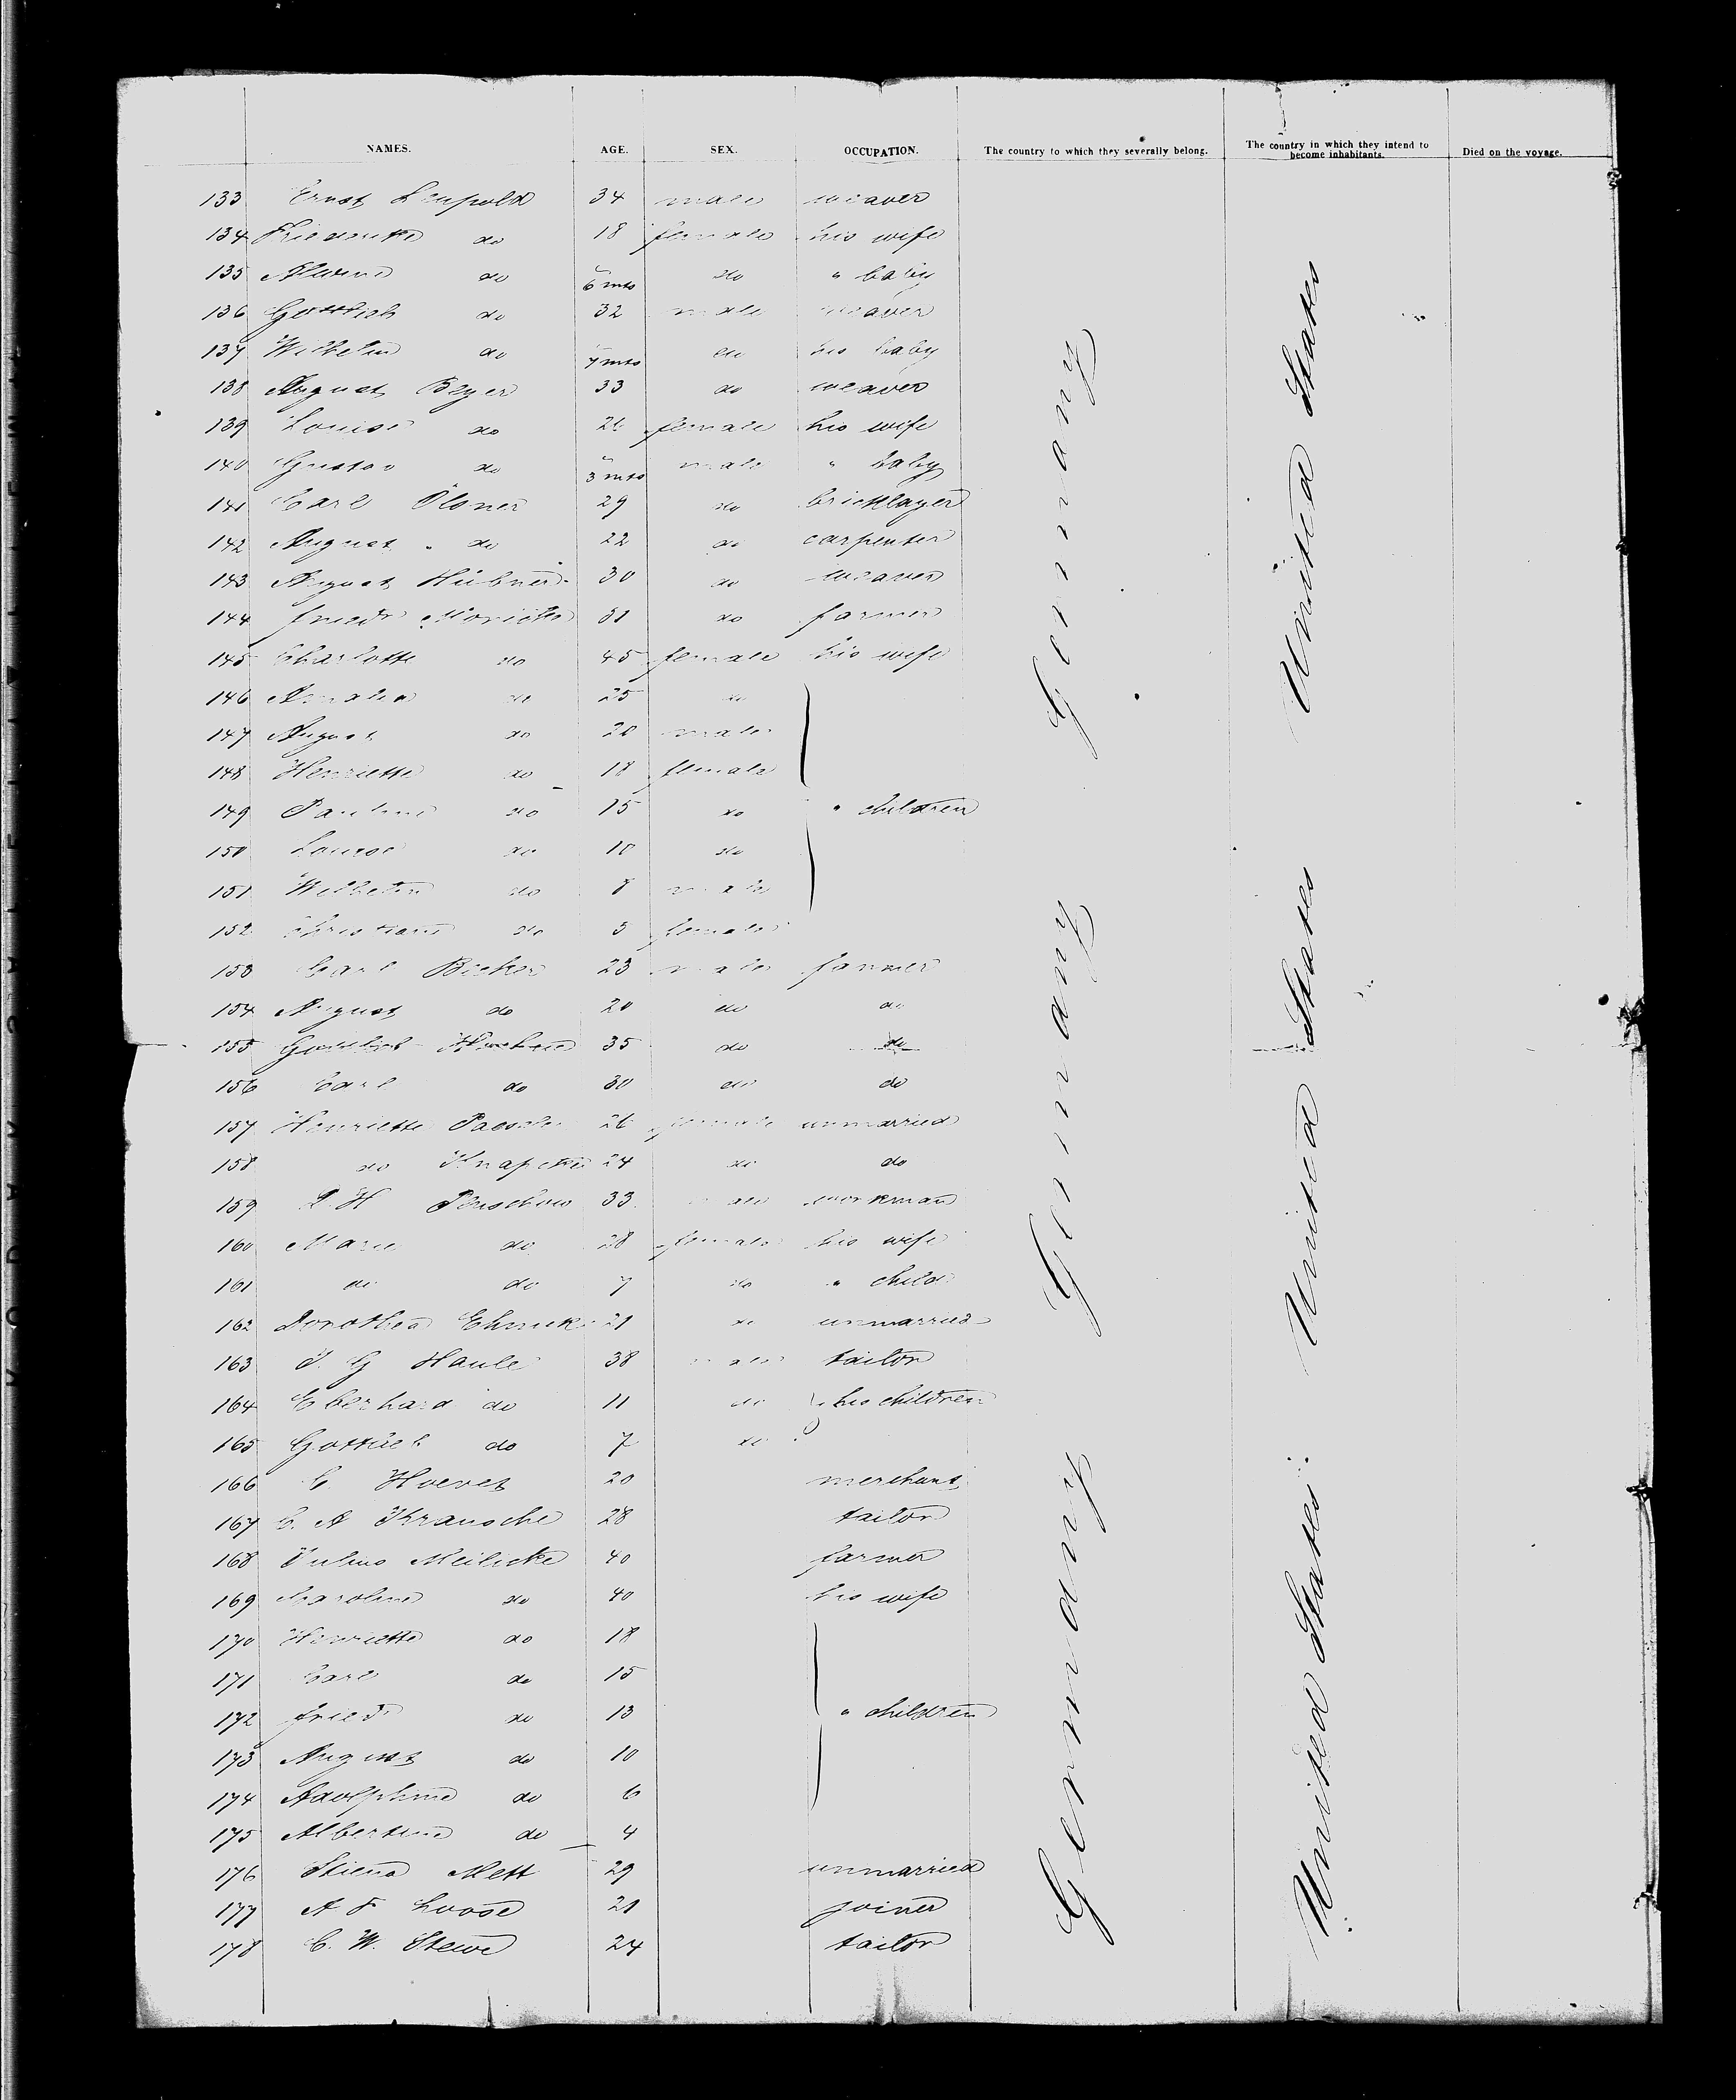 NAMES. AGE. SEX. OCCUPATION. The country to which they severally belong. The country in which they intend to become inhabitants. Died on the voyage.
133 Ernst Leupold 34 male weaver
134 Friederike do 18 female his wife
135 Alwine do 6 mts do " baby
136 Gottlieb do 32 male weaver
137 Wilhelm do 7 mts do his baby
138 August Beyer 33 do weaver
139 Louise do 26 female his wife
140 Gustav do 3 mts male " baby
141 Carl Olsner 29 do bricklayer
142 August " do 22 do carpenter
143 August Hübner 30 do weaver
144 Friedr 51 do farmer
145 Charlotte do 45 female his wife
146 Amalia do 25 do
147 August do 20 male
148 Henriette do 18 female
149 Pauline do 15 do " children
150 Louise do 10 do
151 Wilhelm do 8 male
152 Christiane do 5 female
153 Carl 23 male farmer
154 August do 20 do do
155 Gottlieb 35 do do
156 Carl do 30 do do
157 Henriette 26 female unmarried
158 do 24 do do
159 33 male workman
160 Marie do 28 female his wife
161 do do 7 do " child
162 Dorothea 21 do unmarried
163 J. G Haule 38 male tailor
164 Eberhard do 11 do his children
165 Gottlieb do 7 do
166 C. 20 merchant
167 C. A Krausche 28 tailor
168 Julius Meilicke 40 farmer
169 Karoline do 40 his wife
170 Henriette do 18
171 Carl do 15
172 Friedr do 13 " children
173 August do 10
174 Adolphine do 6
175 Albertine do 4
176 Stiena Mett 29 unmarried
177 A F Loose 21 joiner
178 C. W. Stewe 24 tailor
Germany Germany Germany
United States United States United States